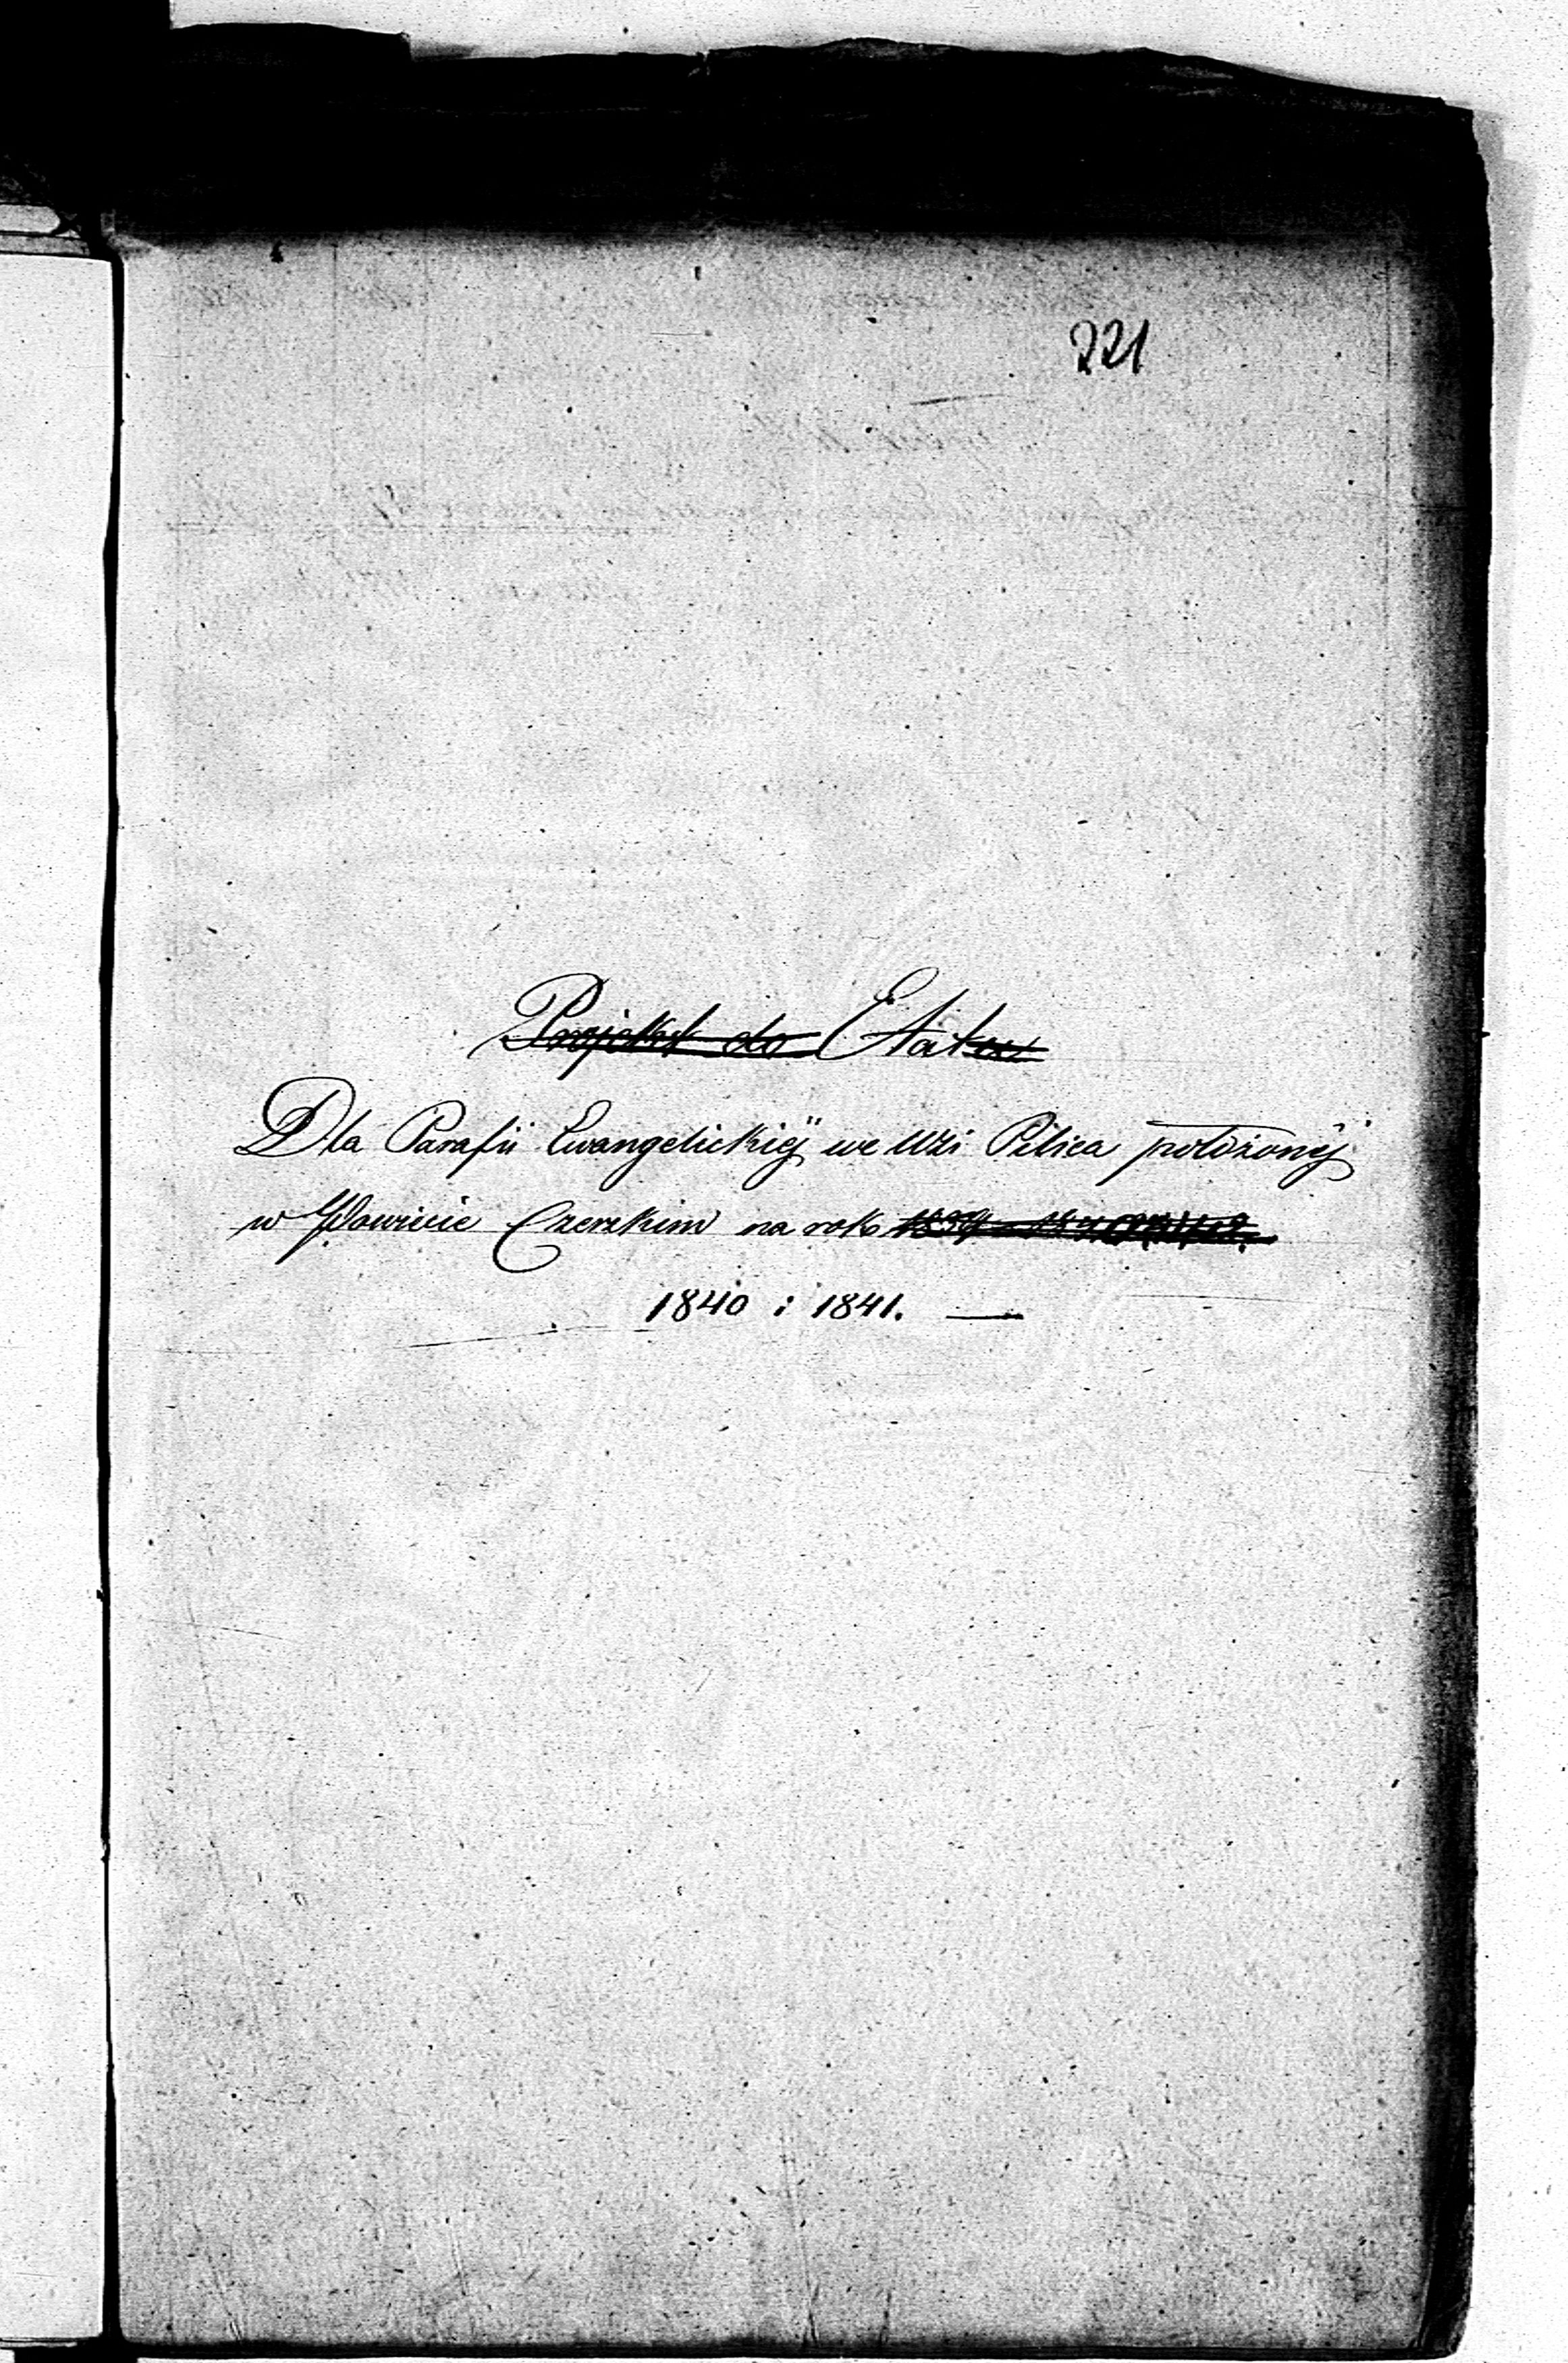 221
Projekt do Etatu
Dla Parafii Ewangelickiéj we Wsi Pilica położonéj
w Powiecie Czerskim na rok 1839
1840 i 1841. —